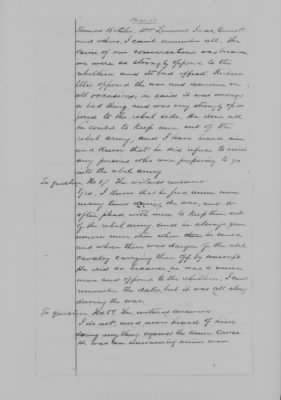 Page 12
Thomas Botcher, Wm Lemons Isaac
and others, I can't remember all. The
cause of our conversation was because
we were so strongly opposed to the
rebellion and its bad effects. Richard
Ellis opposed the war and secession on
all occasions, he said it was wrong
a bad thing and was very strongly op=
posed to the rebel side. He done all
he could to keep men out of the
rebel army, and I have heard him
and know that he did refuse to assist
any persons who were preparing to go
into the rebel army
To question No. 57. The witness answered:
Yes. I know that he fed union men
many times during the war, and so
often plead with men to keep them out
of the rebel army and he always gave
union men when them he could
and when there was danger of the rebel
cavalry carrying them off by
He did so because he was a union
man and opposed to the rebellion, I can't
remember the dates, but it was all along
during the war.
To question No. 58. The witness answered:
I do not, and never heard of him
doing anything against the union cause.
He was an unwavering union man